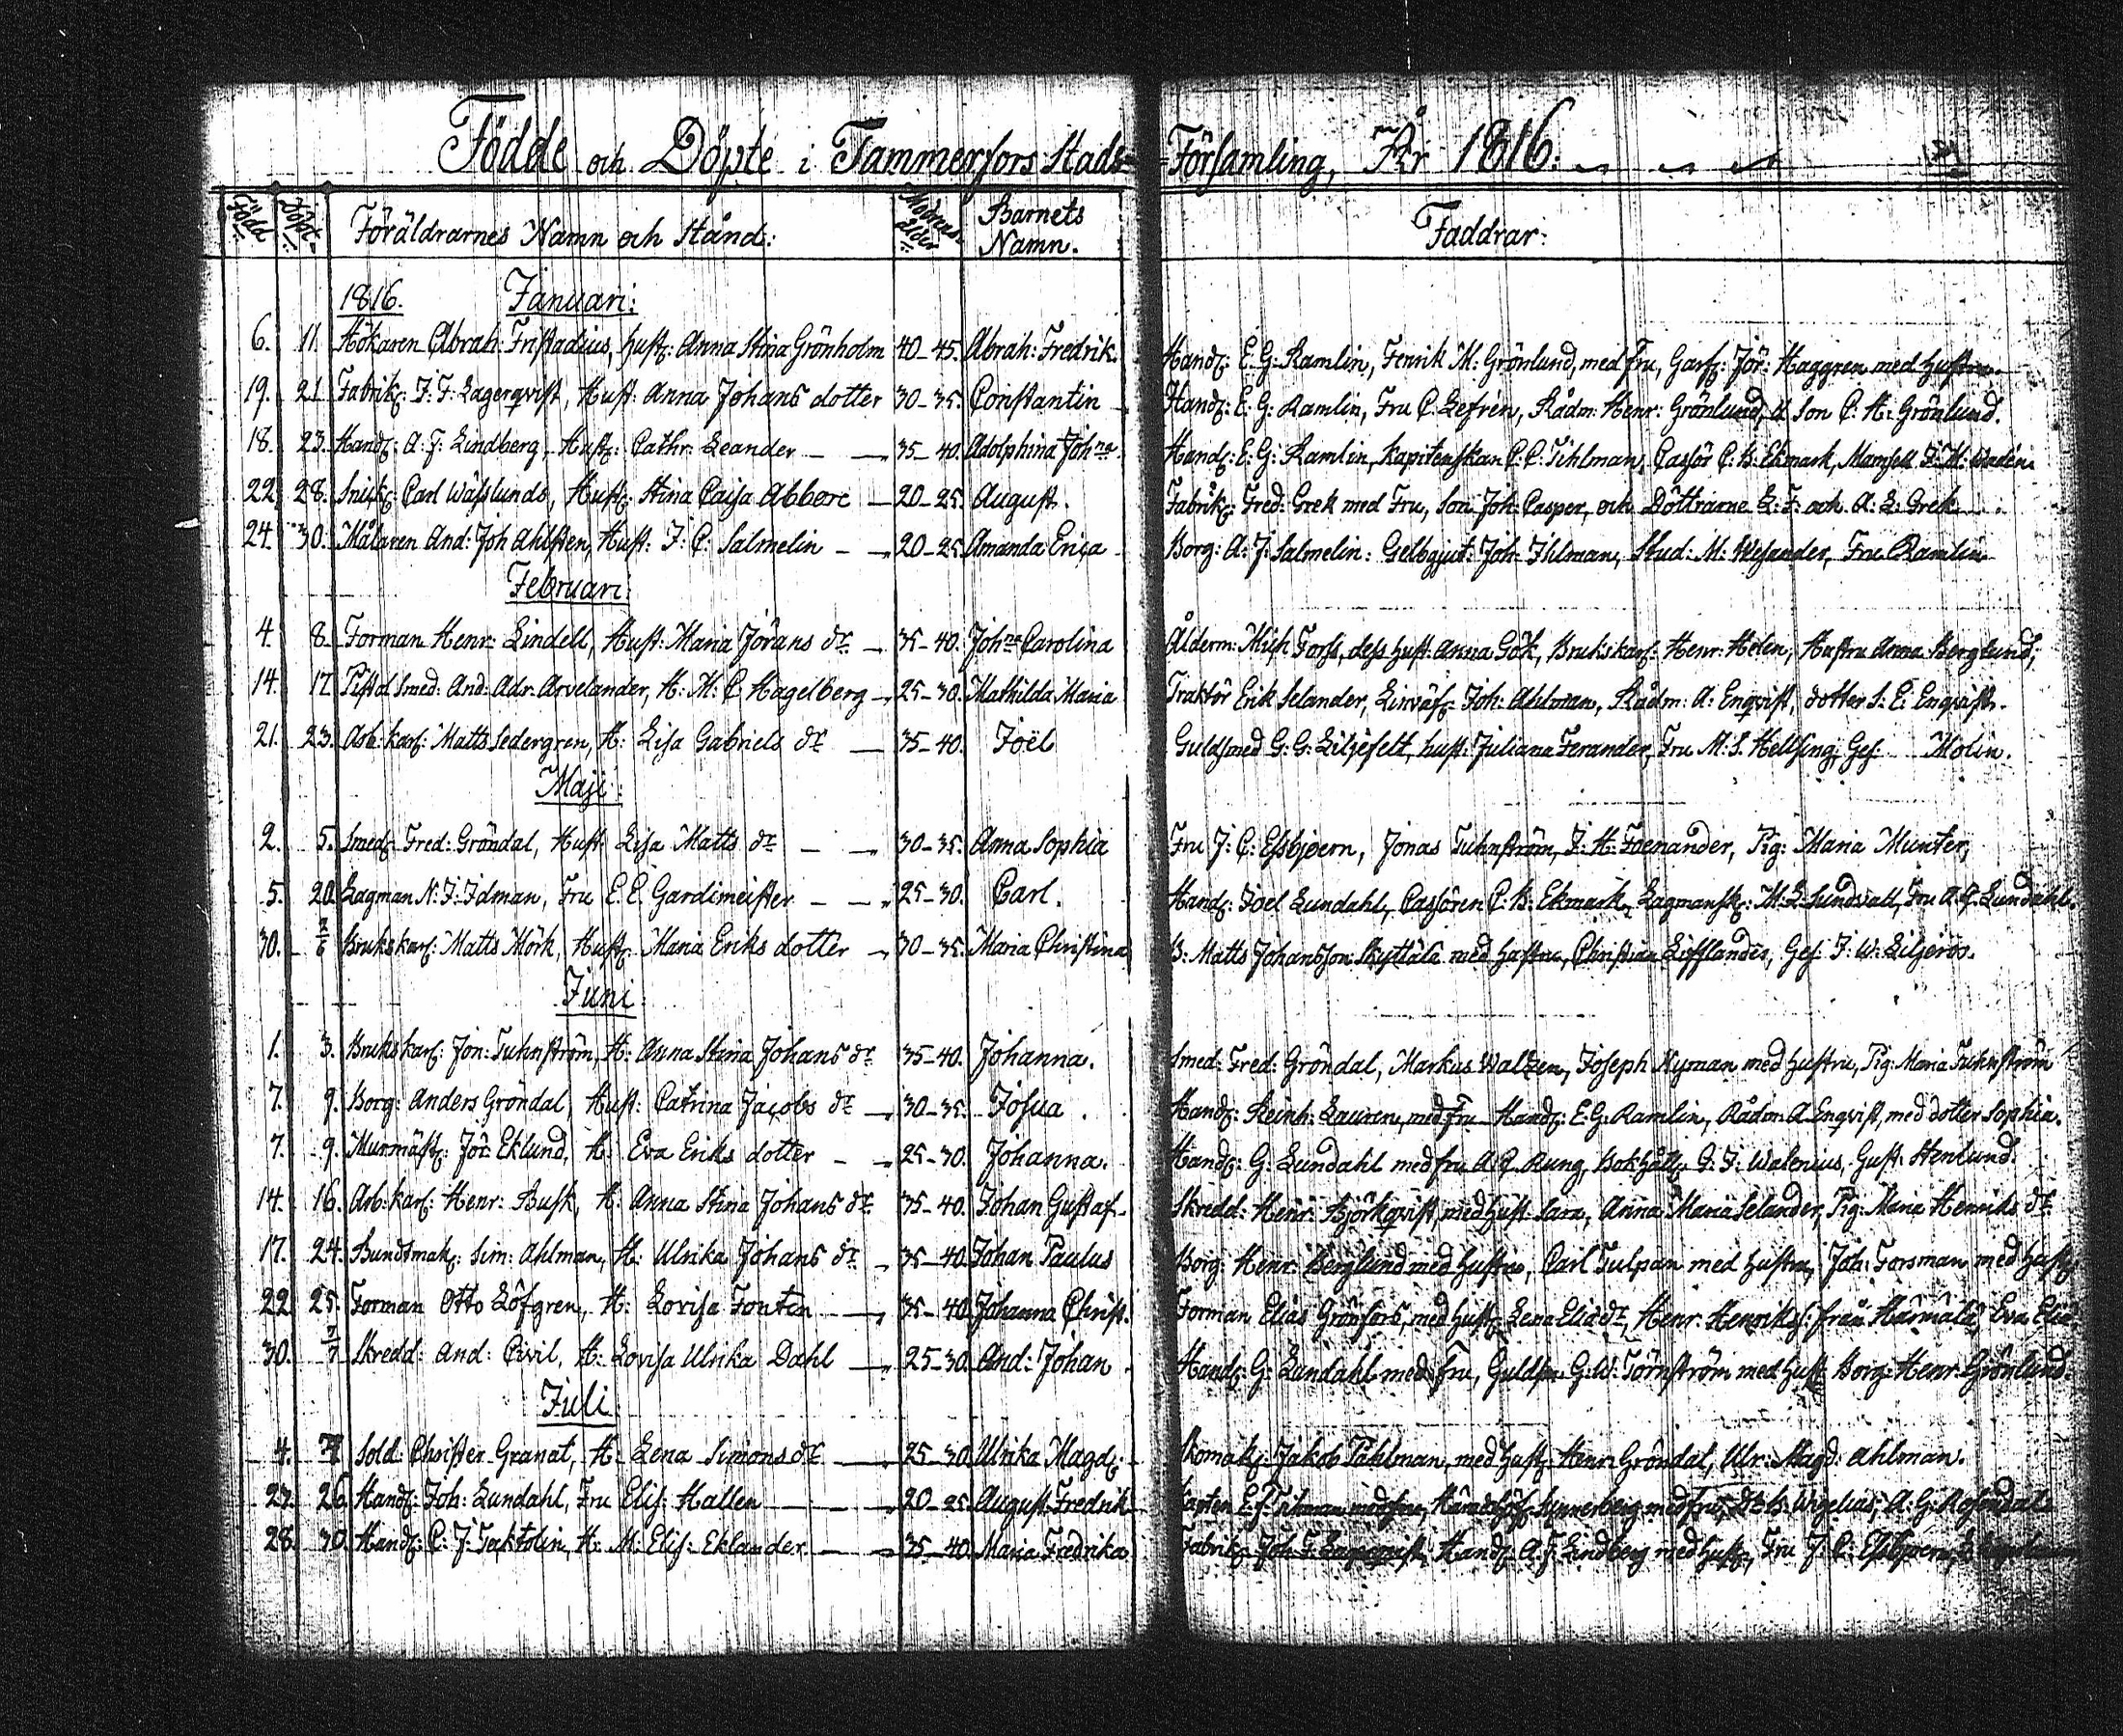 Födde och Döpte i Tammerfors Stads= =Församling, År 1816.
Född Döpt. Föräldrarnes Namn och Stånd: Modrens ålder Barnets Namn. Faddrar:
1816. Januari:
6. 11. Hökaren Abrah: Fristadius, hust: Anna Stina Grönholm 40-45. Abrah: Fredrik. Handl: E: G: Ramlin, Fenrik M: Grönlund, med Fru, Garf: Jör: Haggren med hustru.
19. 21. Fabrik: J: F: Lagerqvist, Hust: Anna Johans dotter 30-35. Constantin Handl: E: G: Ramlin, Fru C: Lefrén, Rådm: Henr: Grönlund, d. son C: H: Grönlund.
18. 23. Handl: A: F: Lindberg, Hust: Cathr: Leander 35-40. Adolphina Joh:na Handl: E: G: Ramlin, Kapitenskan C: C: Tihlman, Cassör C: B: Ekmark, Mamsell F: M: Wadén.
22. 28. Snick: Carl Wässlunds, Hust: Stina Caisa Abbore 20-25. August. Fabrik: Fred: Grek med Fru, son Joh: Casper, och Döttrarne L: F: och A: L: Grek.
24. 30. Målaren And: Joh Ahlsten, Hust: J: C: Salmelin 20-25. Amanda Erica Borg: A: J: Salmelin: Gelbgjut: Joh: Ihlman, Stud: M: Wesander, Fru Ramlin
Februari:
4. 8. Forman Henr: Lindell, Hust: Maria Jörans dr. 35-40. Joh:na Carolina Ålderm: Mich Forss, dess hust: Anna Gök, Brukskarl: Henr: Helin, Hustru Anna Berglund,
14. 17. Pistol Smed: And: Adr: Arvelander, H: M: C: Hagelberg 25-30. Mathilda Maria Traktör Erik Selander, Linväf: Joh: Ahlman, Rådm: A: Enqvist, dotter S: E: Enqvist.
21. 23. Arb: karl: Matts Sedergren, H: Lisa Gabriels dr. 35-40. Joël Guldsmed G: G: Liljefelt, hust: Juliana Ferander, Fru M: S: Hellsing, Ges: Molin.
Maji:
2. 5. Smed: Fred: Gröndal, Hust: Lisa Matts dr. 30-35. Anna Sophia Fru J: C: Essbjoern, Jonas Tuhnström, J: H: Foenander, Pig: Maria Munter,
5. 20. Lagman N: J: Idman, Fru E: E: Gardimeister 25-30. Carl. Handl: Joel Lundahl, Cassören C: B: Ekmark, Lagmansk: M: L: Sundvall, Fru A: F: Lundahl.
30. 2/6 Brukskarl: Matts Mörk, Hust: Maria Eriks dotter 30-35. Maria Christina B: Matts Johansson Skyttälä med hustru, Christian Lifflander, Ges: J: W: Liljeroos.
Juni:
1. 3. Brukskarl: Jon: Tuhnström, H: Anna Stina Johans dr. 35-40. Johanna. Smed: Fred: Gröndal, Markus Waltzen, Joseph Nyman med hustru, Pig: Maria Tuhnström
7. 9. Borg: Anders Gröndal, Hust: Catrina Jacobs dr. 30-35. Josua. Handl: Reinh: Lauren, med Fru Handl: E: G: Ramlin, Rådm A: Enqvist, med dotter Sophia.
7. 9. Murmäst: Jör: Eklund, H: Eva Eriks dotter 25-30. Johanna. Handl: G: Lundahl med fru A: F: Rung, Bokhåll: G: J: Walenius, Gust: Stenlund.
14. 16. Arb: karl: Henr: Busk, H: Anna Stina Johans dr. 35-40. Johan Gustaf. Skredd: Henr: Björkqvist, med hust: Sara, Anna Maria Selander, Pig: Maria Henriks dr.
17. 24. Bundtmak: Sim: Ahlman, H: Ulrika Johans dr. 35-40. Johan Paulus Borg: Henr: Berglund med hustru, Carl Tulpan med hustru, Joh: Forsman med hust:
22. 25. Forman Otto Löfgren, H: Lovisa Fontin 35-40. Johanna Christ. Forman Elias Grönfors, med hust: Lena Elia dr. Henr: Henrikss: från Härmälä, Eva Elia
30. 5/7 Skredd: And: Civil, H: Lovisa Ulrika Dahl 25-30. And: Johan Handl: G: Lundahl med Fru, Guldsm: G: W: Törnström med hust: Borg: Henr: Grönlund.
Juli
4. Sold: Christer Granat, H: Lena Simons dr. 25-30. Ulrika Magd: Skomak: Jakob Pahlman, med hust: Henr: Gröndal, Ulr: Magd: Ahlman.
23. 26. Handl: Joh: Lundahl, Fru Elis: Hallen 20-25. August Fredrik Wigelius, A: G: Rosendal
28. 30. Handl: C: J: Taktolin, H: M: Elis: Eklander 35-40. Maria Fredrika Fabrik: Joh: F: Lagerqvist, Handl: A: F: Lindberg med hust:, Fru J: C: Essbjoern,